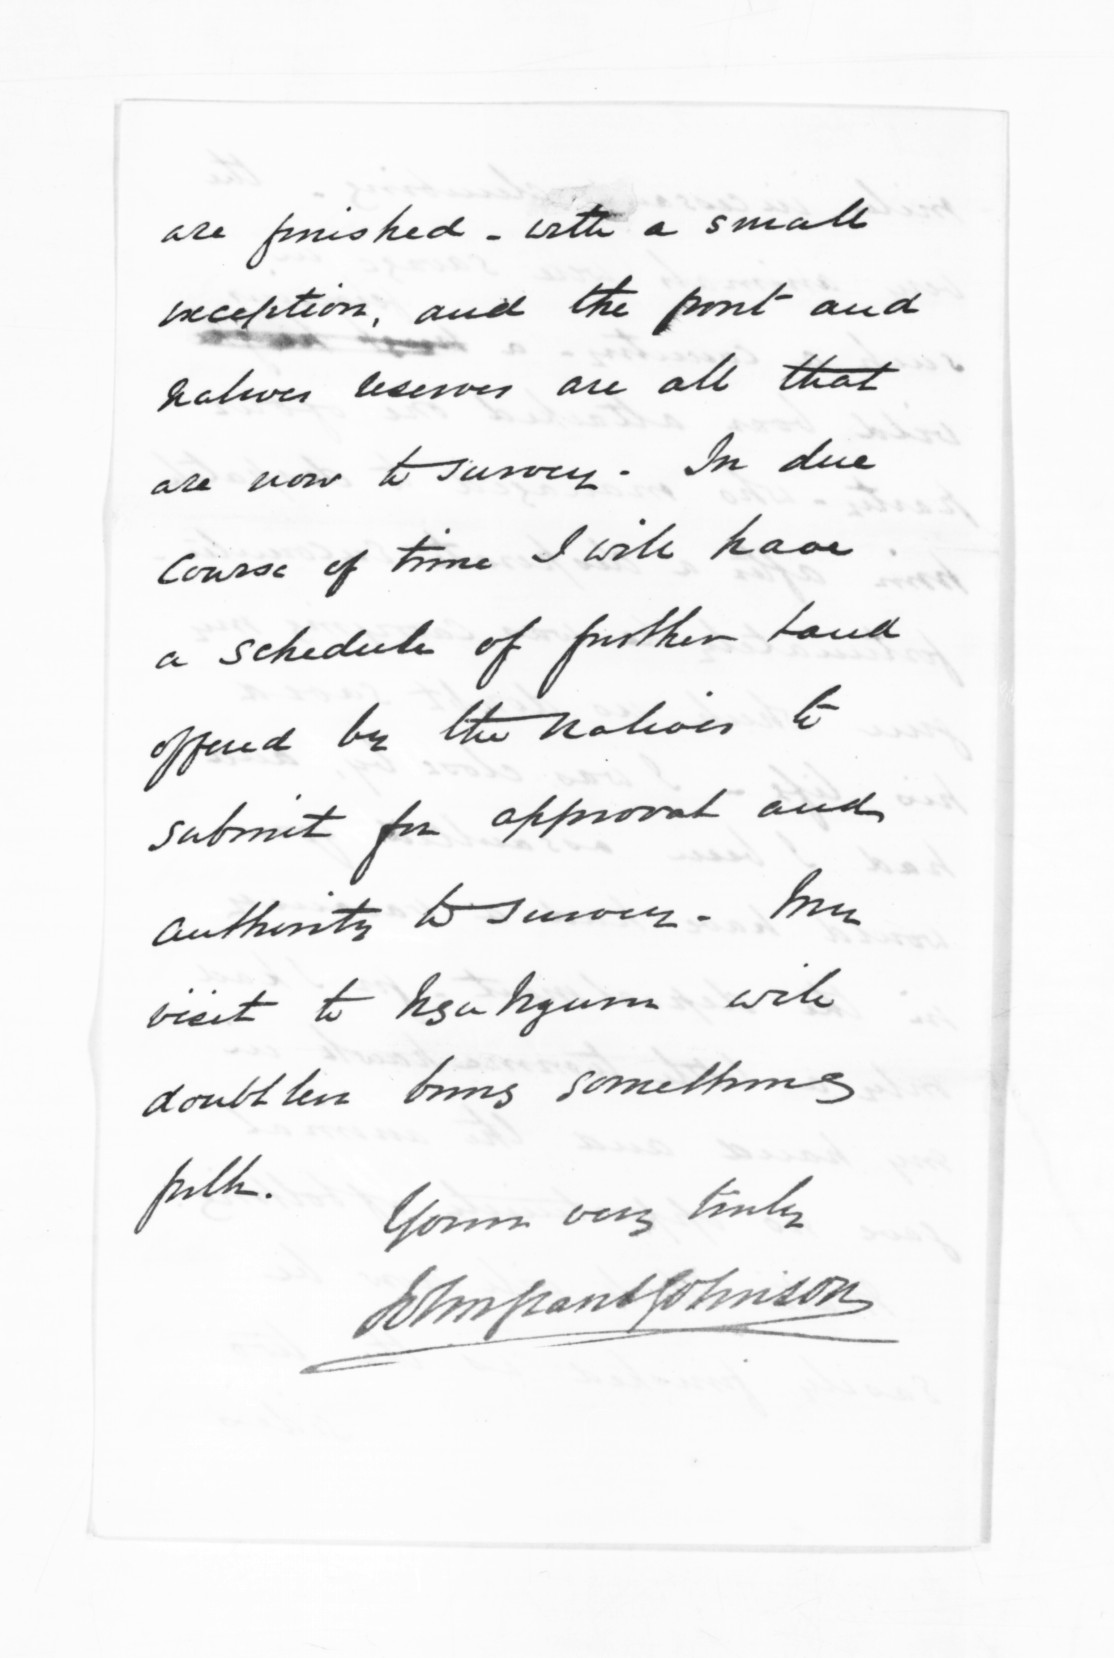 are finished - with a small
exception, and the pont and
natives reserves are all that
are now to survey. In due
course of time I will have
a schedule of further land
offered by the natives to
submit for approval and
authority to survey. My
visit to will
doubtless bring something
forth.
Yours very truly
John Grant Johnson